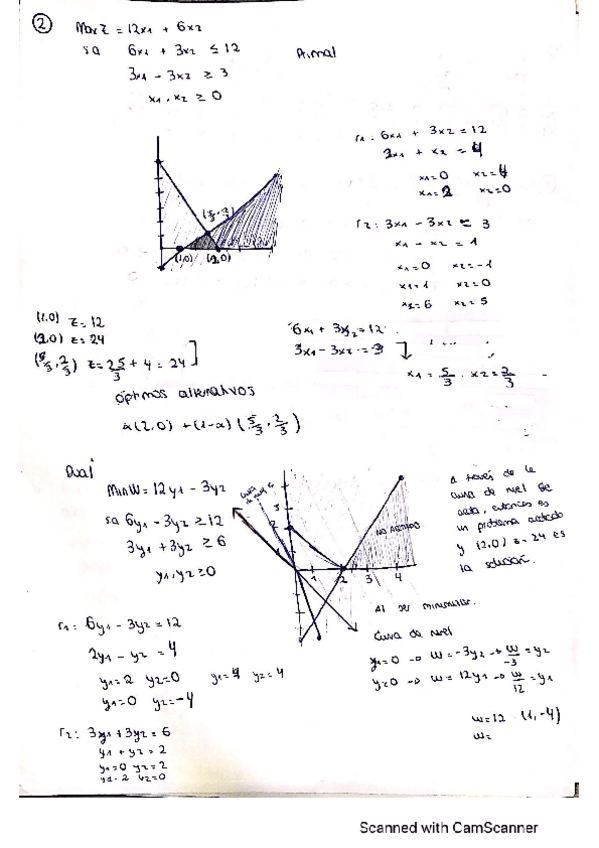 ②
Max Z = 12x1 + 6x2
sa 6x1 + 3x2 ≤ 12
Primal
3x1 - 3x2 ≥ 3
x1, x2 ≥ 0
r1: 6x1 + 3x2 = 12
2x1 + x2 = 4
x1=0 x2=4
x1=2 x2=0
r2: 3x1 - 3x2 = 3
x1 - x2 = 1
x1=0 x2=-1
x1=1 x2=0
x2=6 x2=5
(5/3, 2/3)
(1,0) (2,0)
(1,0) Z=12
(2,0) Z=24
(5/3, 2/3) Z=25/3 + 4 = 24
6x1 + 3x2 = 12
3x1 - 3x2 = 3
x1 = 5/3 . x2 = 2/3
óptimos alternativos
α(2,0) + (1-α)(5/3, 2/3)
Dual
Min W = 12y1 - 3y2
sa 6y1 - 3y2 ≥ 12
3y1 + 3y2 ≥ 6
y1, y2 ≥ 0
NO ACOTADO
1 2 3 4
A través de la
curva de nivel se
acota, entonces es
un problema acotado
y (2,0) z=24 es
la solución.
Al ser minimizar.
Curva de nivel
y1=0 → W = -3y2 → W/-3 = y2
y2=0 → W = 12y1 → W/12 = y1
W=12 (1,-4)
W=
r1: 6y1 - 3y2 = 12
2y1 - y2 = 4
y1=2 y2=0
y1=4 y2=4
y1=0 y2=-4
r2: 3y1 + 3y2 = 6
y1 + y2 = 2
y1=0 y2=2
y1=2 y2=0
Scanned with CamScanner